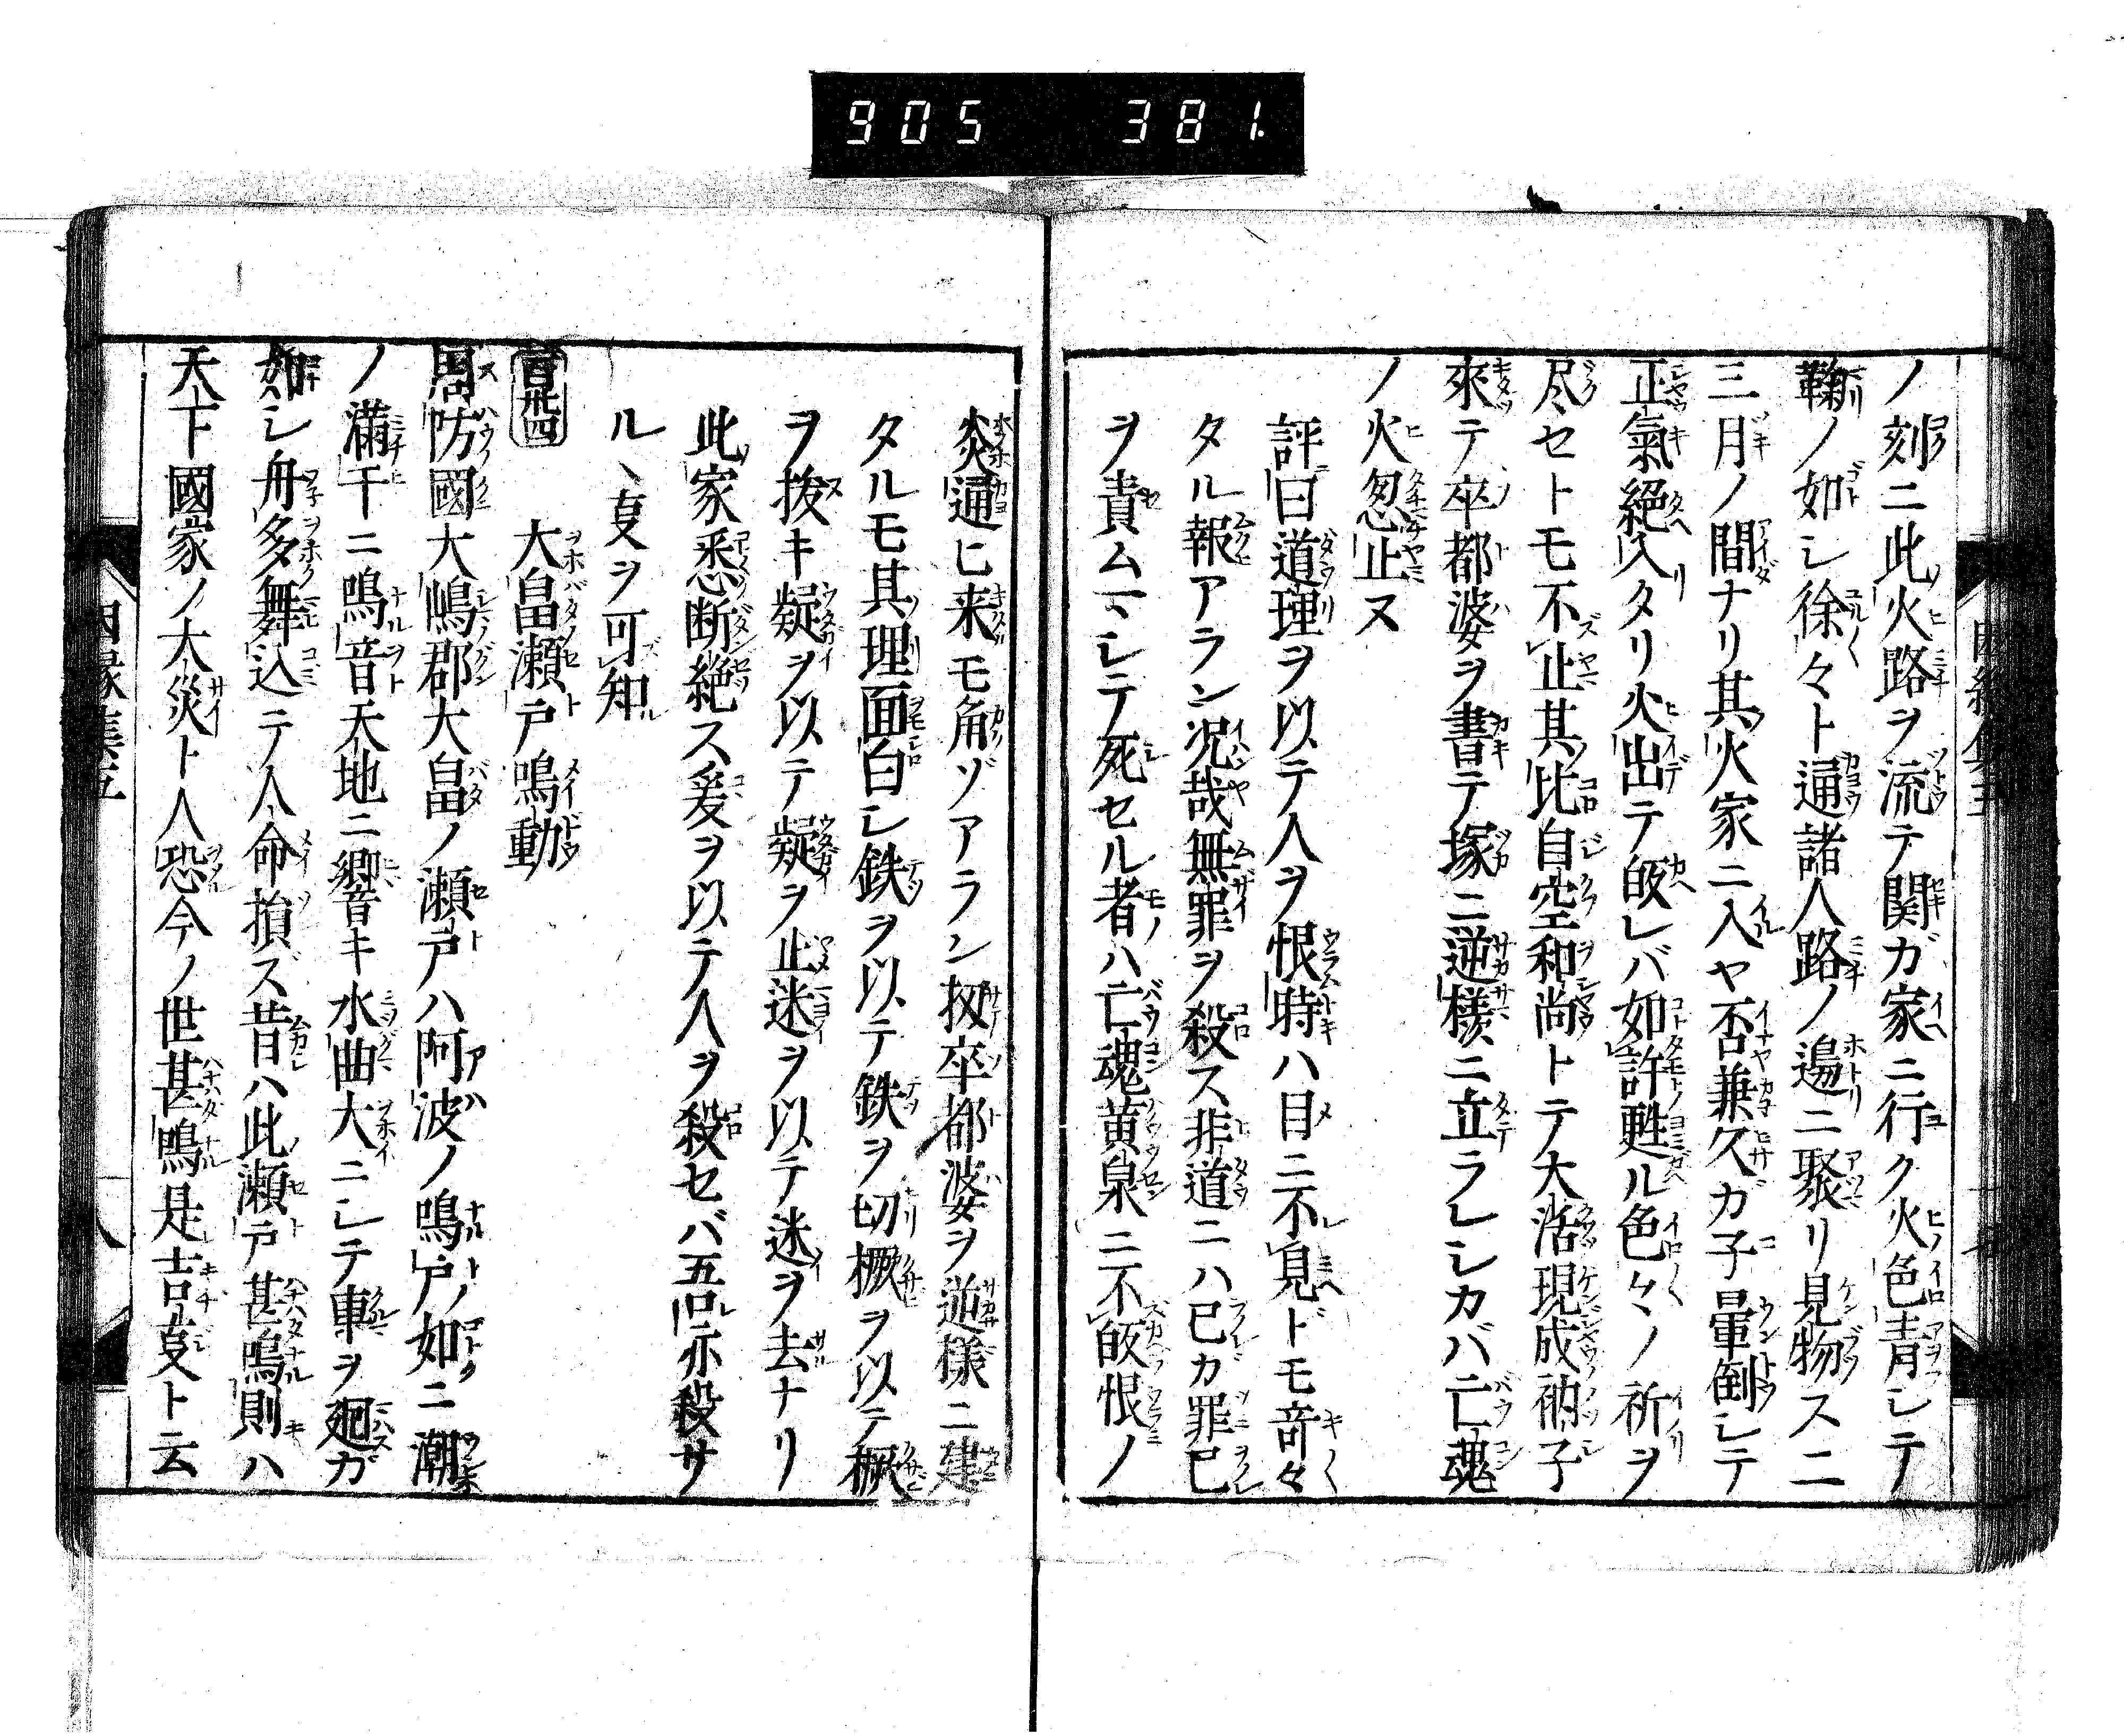 905 381.
ノ刻ニ此火路ヲ流テ関ガ家ニ行ク火ノ色青シテ
鞠ノ如シ徐々ト通諸人路ノ邉ニ聚リ見物ス二
三月ノ間ナリ其火家ニ入ヤ否兼久ガ子暈倒シテ
正氣絶入タリ火出テ皈レバ如許甦ル色々ノ祈ヲ
尽セトモ不止其比自空和尚トテ大活現成衲子
來テ卒都婆ヲ書テ塚ニ逆様ニ立ラレシカバ亡魂
ノ火忽止ヌ
評曰道理ヲ以テ人ヲ恨時ハ目ニ不見ドモ竒々
タル報アラン况哉無罪ヲ殺ス非道ニハ己カ罪己
ヲ責ムヿヽシテ死セル者ハ亡魂黄泉ニ不皈恨ノ
炎通ヒ来モ角ゾアラン扨卒都婆ヲ逆様ニ建
タルモ其理面白シ鉄ヲ以テ鉄ヲ切橛ヲ以テ橛
ヲ抜キ疑ヲ以テ疑ヲ止迷ヲ以テ迷ヲ去ナリ
此家悉断絶ス爰ヲ以テ人ヲ殺セバ吾亦殺サ
ルヽ叓ヲ可知
百卅四 大畠瀬戸鳴動
周防國大嶋郡大畠ノ瀬戸ハ阿波ノ鳴戸ノ如ニ潮
ノ満干ニ鳴音天地ニ響キ水曲大ニシテ車ヲ廻ガ
如シ舟多舞込テ人命損ズ昔ハ此瀬戸甚鳴則ハ
天下國家ノ大災ト人恐今ノ世甚鳴是吉叓ト云
因縁集五